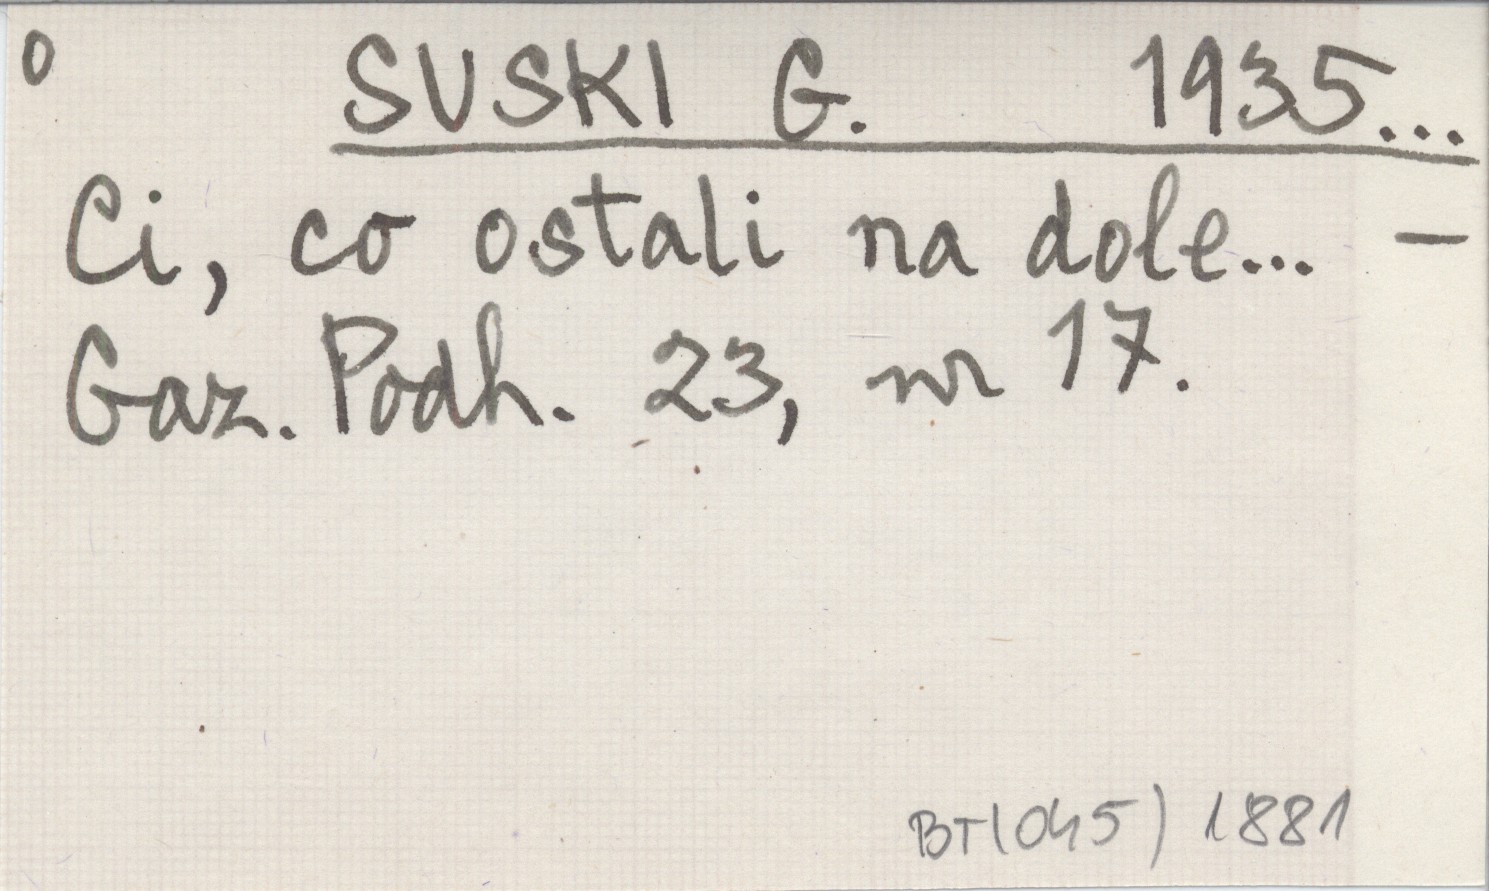 0 SUSKI G. 1935...
Ci, co ostali na dole... —
Gaz. Podh. 23, nr 17.
BT(045) 1881